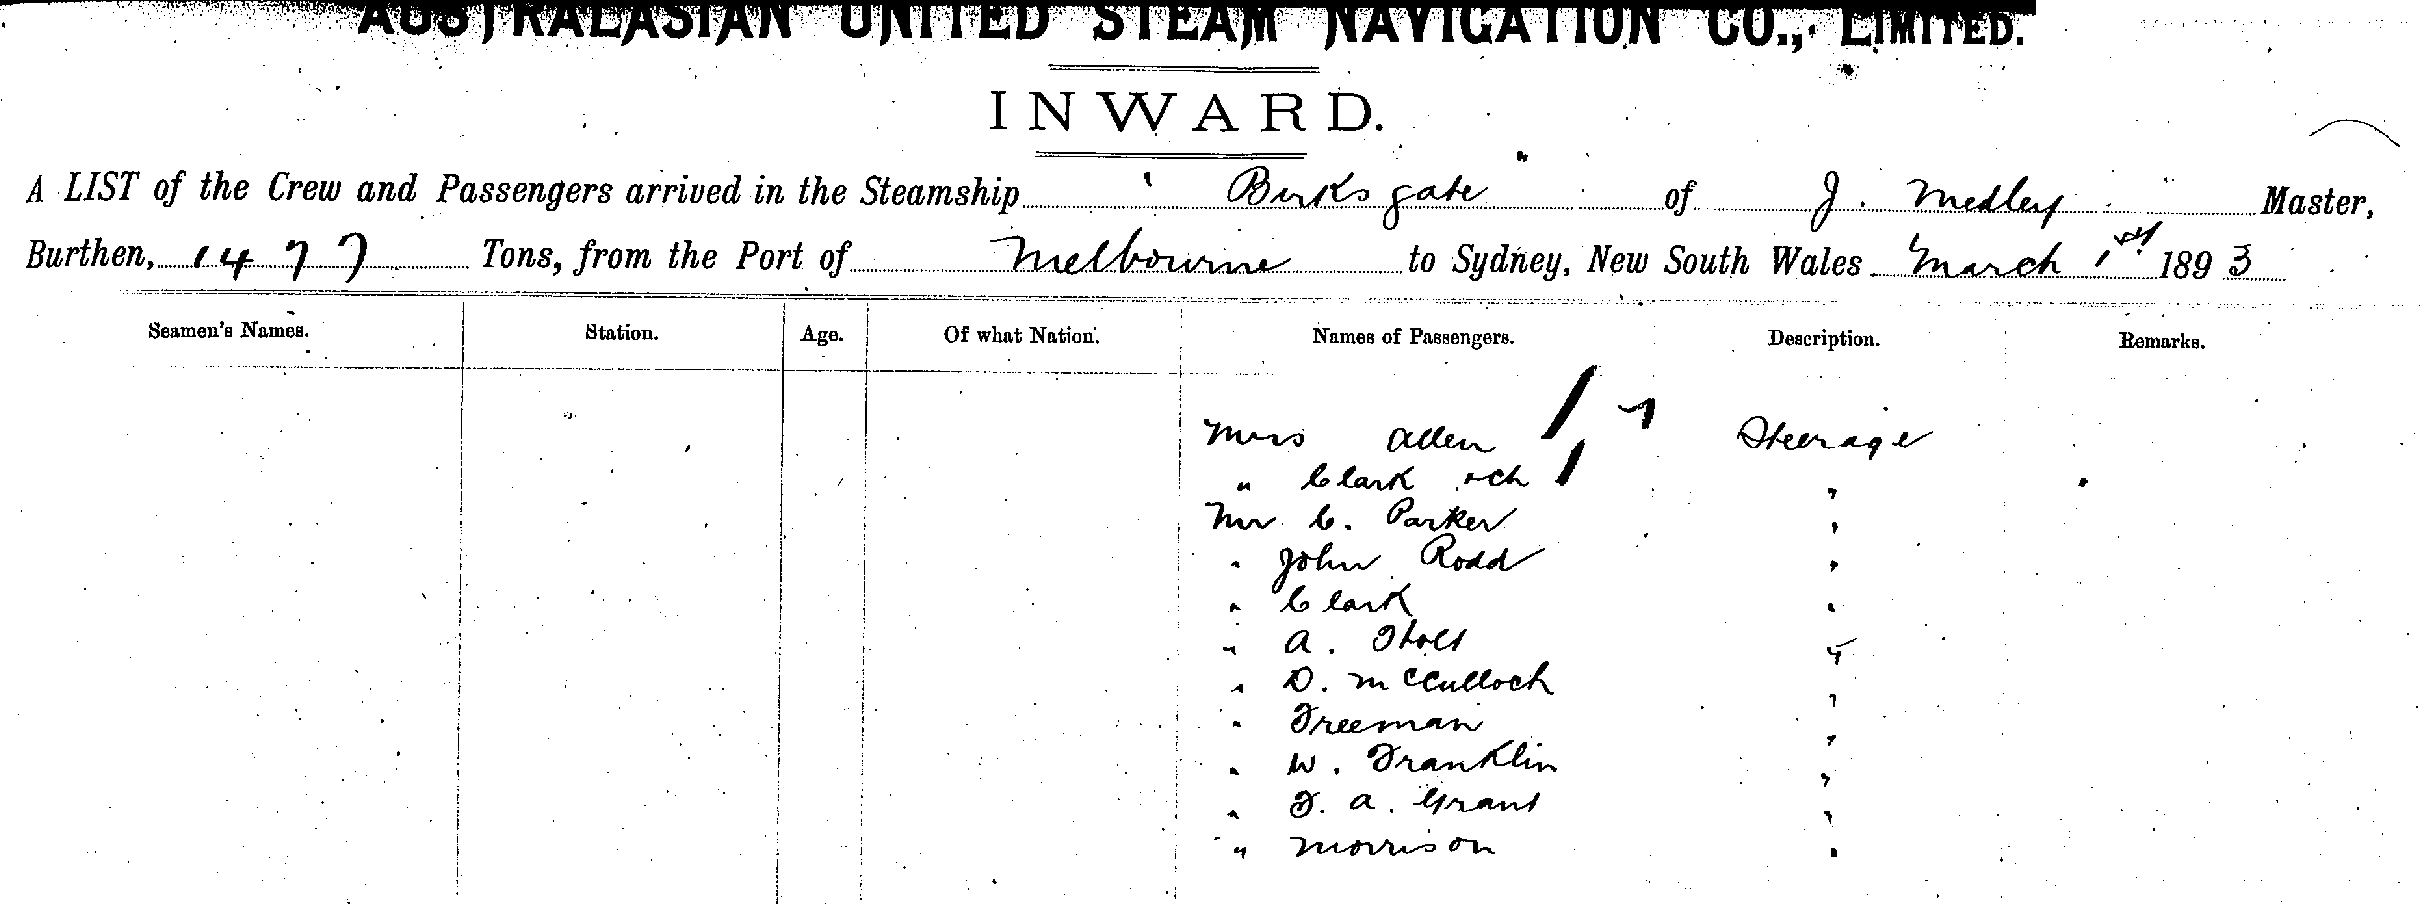 AUSTRALASIAN UNITED STEAM NAVIGATION CO., LIMITED.
INWARD.
A LIST of the Crew and Passengers arrived in the Steamship Birksgate of J. Medley Master,
Burthen, 1477 Tons, from the Port of Melbourne to Sydney, New South Wales March 1st 1893
Seamen's Names. Station. Age. Of what Nation. Names of Passengers. Description. Remarks.
Mrs Allen Steerage
" Clark & ch "
Mr C. Parker "
" John Rodd "
" Clark "
" A. Holt "
" D. McCulloch "
" Freeman "
" W. Franklin "
" F. A. Grant "
" Morrison "